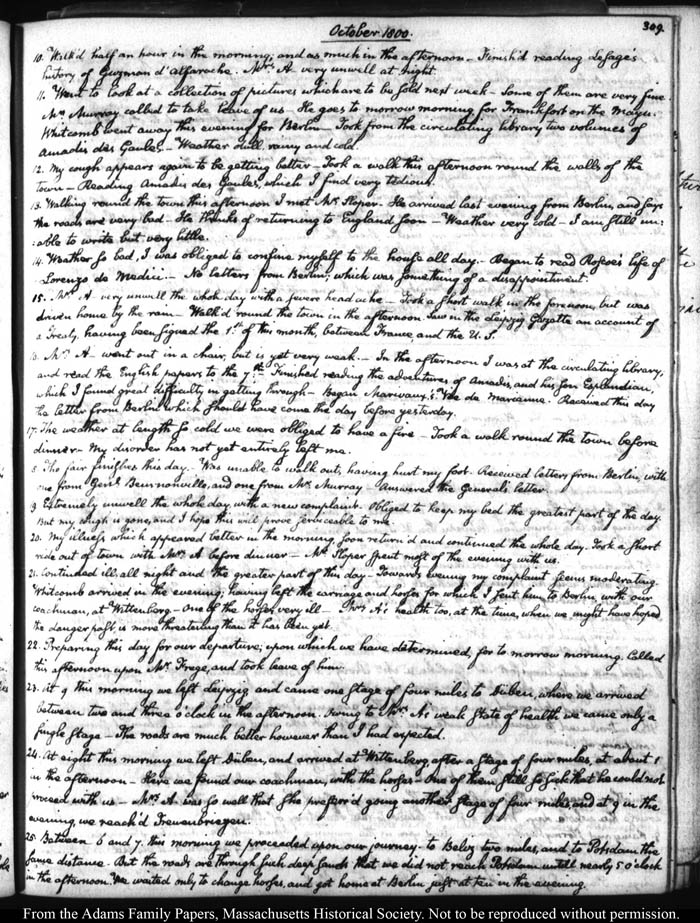 October 1800.
309.
10. Walk'd half an hour in the morning, and as much in the afternoon - Finish'd reading Lesage's
history of Guzman d'alfarache. Mrs. A. very unwell at night.
11. Went to look at a collection of pictures which are to be sold next week - Some of them are very fine.
Mr. Murray called to take leave of us - He goes to morrow morning for Frankfort on the Mayn.
Whitcomb went away this evening for Berlin - Took from the circulating library two volumes of
Amadis des Gaules - Weather dull rainy and cold.
12. My cough appears again to be getting better - Took a walk this afternoon round the walls of the
town - Reading Amadis des Gaules, which I find very tedious.
13. Walking round the town this afternoon I met Mr. Sloper. He arrived last evening from Berlin, and says
the roads are very bad - He thinks of returning to England soon - Weather very cold - I am still un-
able to write but very little.
14. Weather so bad, I was obliged to confine myself to the house all day. - Began to read Roscoe's life of
Lorenzo de Medici. - No letters from Berlin; which was something of a disappointment.
15. Mrs. A. very unwell the whole day with a severe head ache - Took a short walk in the forenoon, but was
driven home by the rain - Walk'd round the town in the afternoon. Saw in the Leipzig Gazette an account of
a Treaty, having been signed the 1st. of this month, between France and the U.S.
Mrs. A - went out in a chair, but is yet very weak. - In the afternoon I was at the circulating library,
and read the English papers to the 7th. Finished reading the adventures of Amadis, and his son Esplandian,
which I found great difficulty in getting through - Began Marivaux's Vie de Marianne. Received this day
the letter from Berlin which should have come the day before yesterday.
17. The weather at length so cold we were obliged to have a fire - Took a walk round the town before
dinner - My disorder has not yet entirely left me.
8. The fair finishes this day. Was unable to walk out, having hurt my foot. Received letters from Berlin, with
one from Genl. Beurnonville, and one from Mr. Murray - Answered the General's letter.
9 Extremely unwell the whole day, with a new complaint. Obliged to keep my bed the greatest part of the day.
But my cough is gone, and I hope this will prove serviceable to me.
20. My illness, which appeared better in the morning, soon return'd and continued the whole day. Took a short
ride out of town with Mrs. A before dinner - Mr. Sloper spent most of the evening with us.
21. Continued ill, all night and the greater part of this day - Towards evening my complaint seems moderating.
Whitcomb arrived in the evening; having left the carriage and horses for which I sent him to Berlin, with our
coachman, at Wittenberg - One of the horses very ill - Mrs. A's health too, at the time, when we might have hoped
the danger past, is more threatening than it has been yet.
22. Preparing this day for our departure; upon which we have determined, for to morrow morning. Called
this afternoon upon Mr. Frege, and took leave of him.
23. At 9 this morning we left Leipzig and came one stage of four miles to Düben, where we arrived
between two and three o'clock in the afternoon. Owing to Mrs. A's weak state of health we came only a
single stage - The roads are much better however than I had expected.
24. At eight this morning we left Düben, and arrived at Wittenberg, after a stage of four miles, at about 1
in the afternoon - Here we found our coachman, with the horses - One of them still so sick that he could not
proceed with us - Mrs. A was so well that she preferr'd going another stage of four miles, and at 9 in the
evening, we reach'd Treuenbriezen.
25. Between 6 and 7. this morning we proceeded upon our journey - to Beliz two miles, and to Potsdam the
same distance. But the roads are through such deep sands that we did not reach Potsdam untill nearly 5 o'clock
in the afternoon. We waited only to change horses, and got home at Berlin just at ten in the evening.
From the Adams Family Papers, Massachusetts Historical Society. Not to be reproduced without permission.